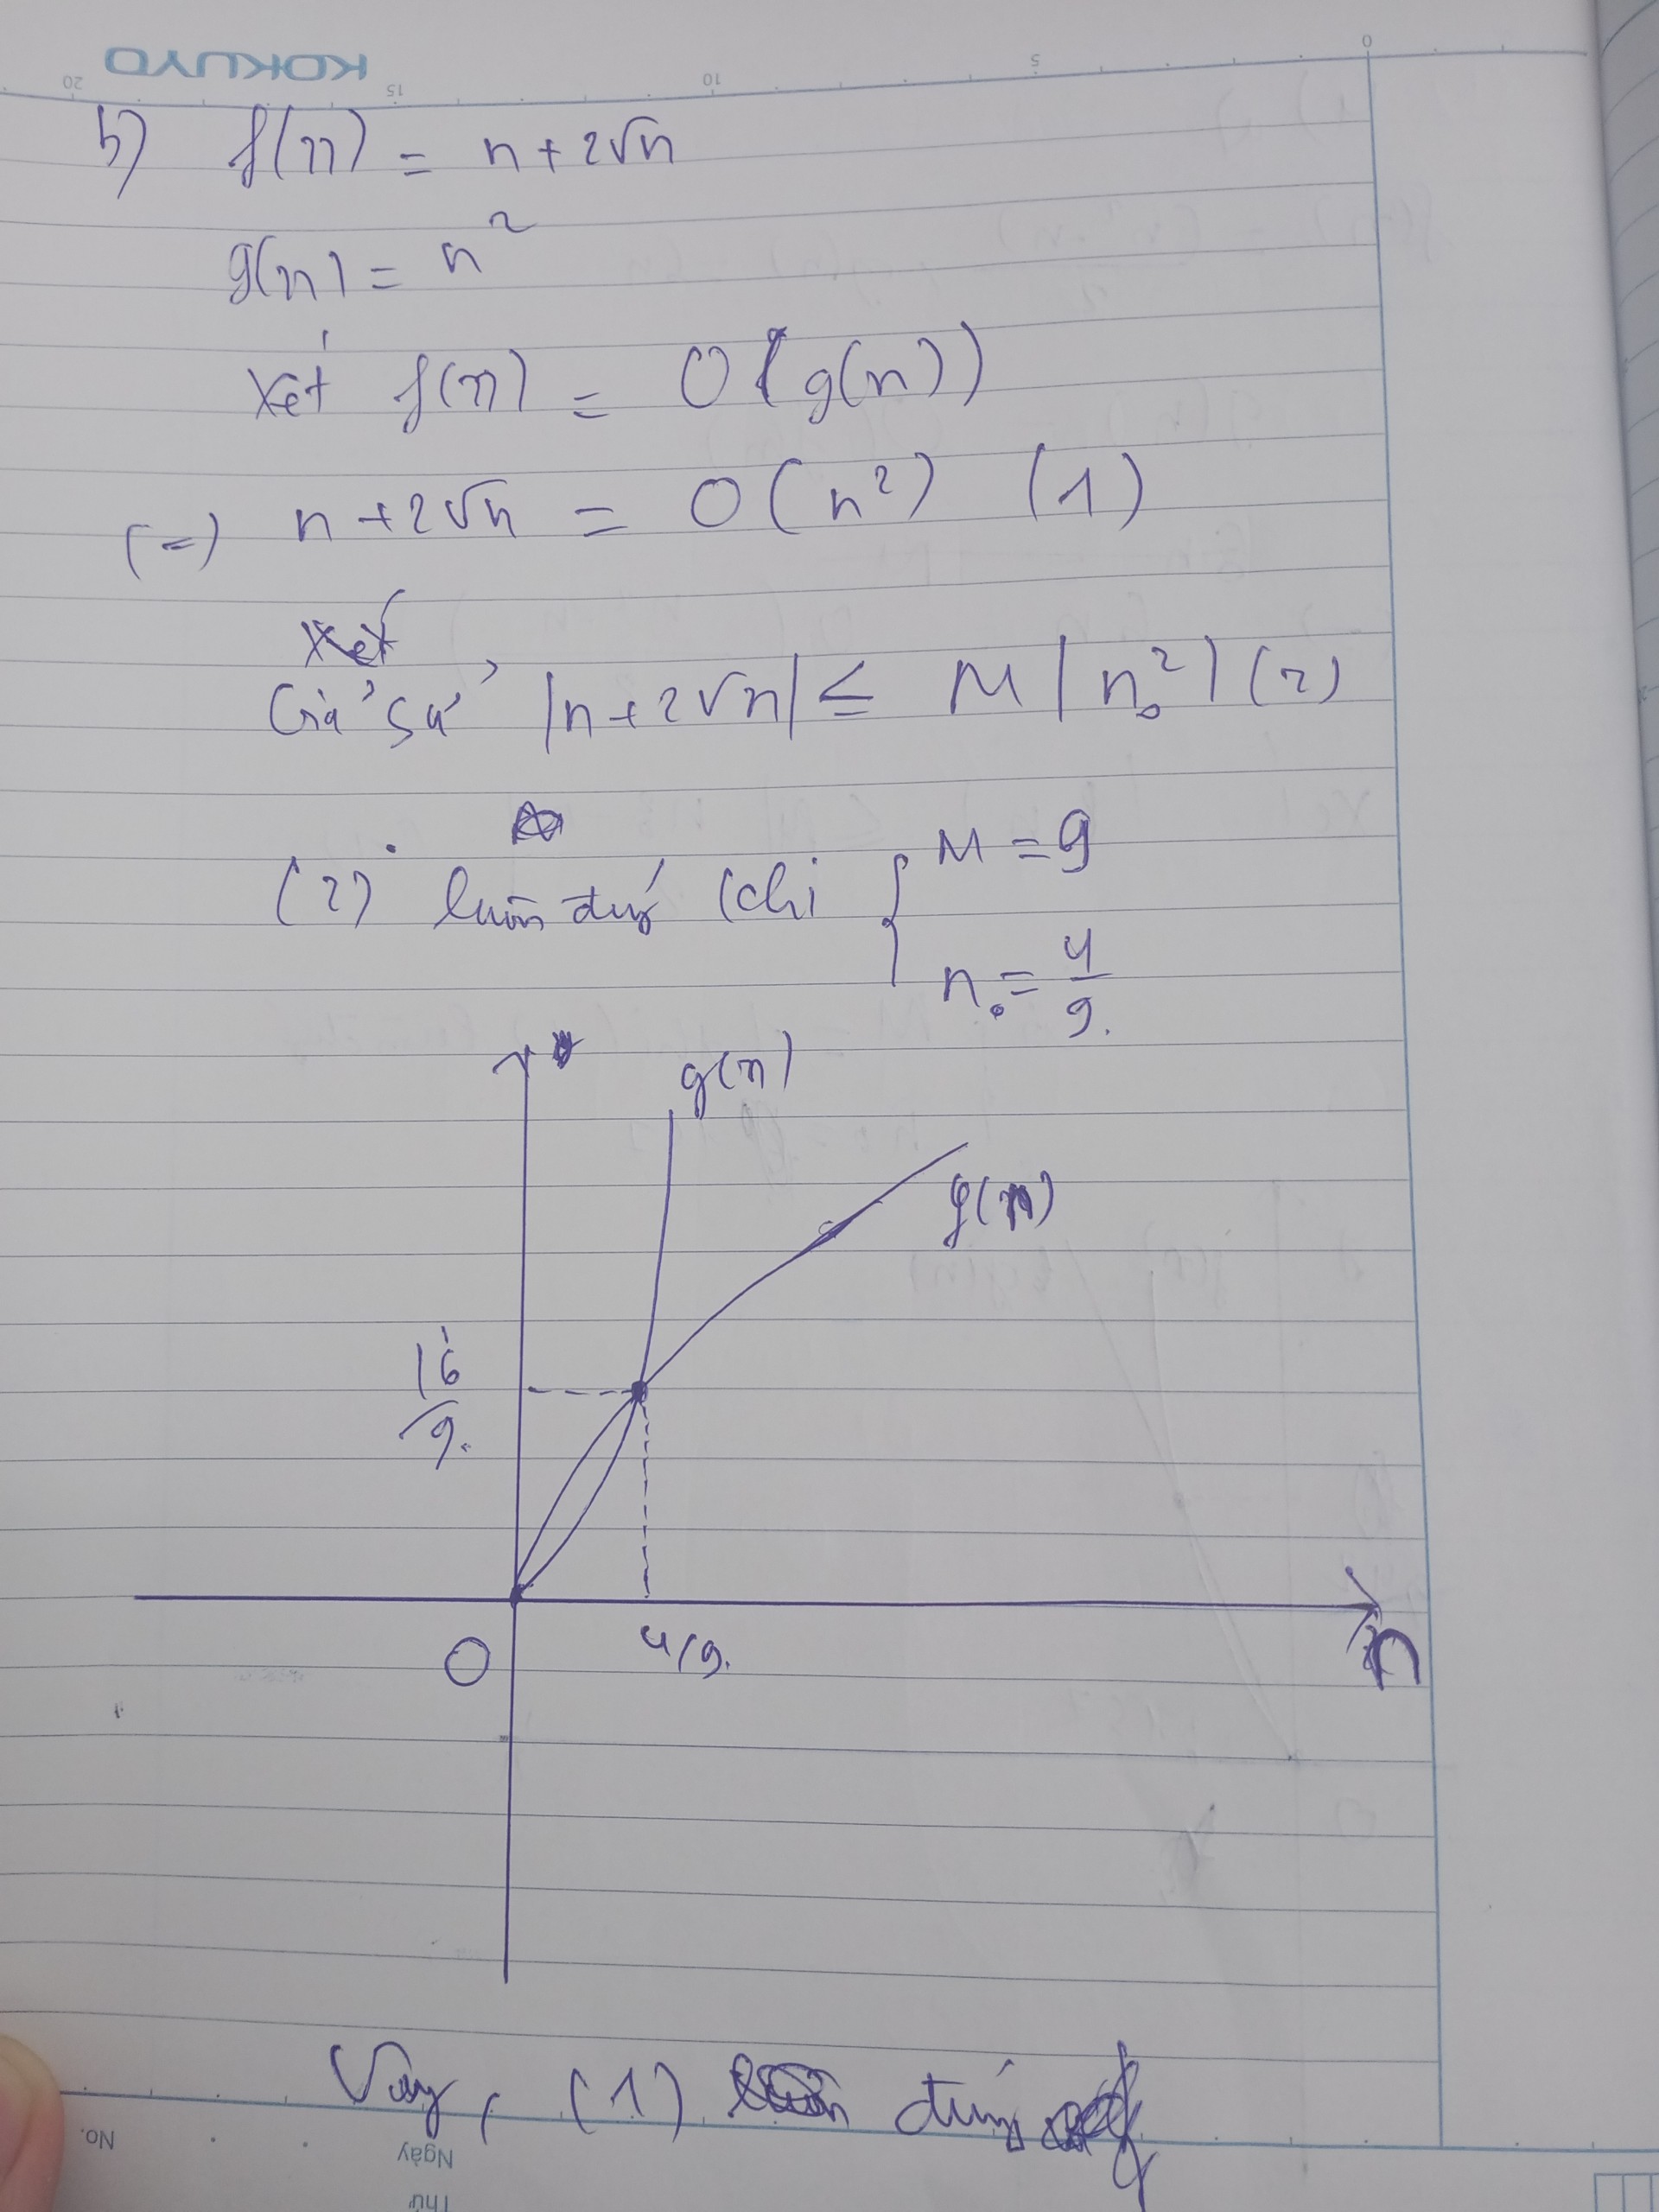 KOKUYO
0 5 10 15 20
b) f(n) = n + 2√n
g(n) = n²
Xét f(n) = O(g(n))
(=) n + 2√n = O(n²) (1)
Xét
Giả sử |n + 2√n| ≤ M |n₀²| (2)
(2) luôn đúg khi { M = 9
n₀ = 4/9.
g(n)
f(n)
16/9.
O 4/9. n
Vậy, (1) đúng
No.
Ngày
Thứ